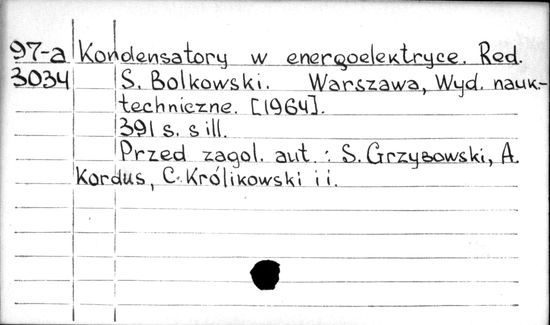 97-a Kondensatory w energoelektryce. Red.
3034 S. Bolkowski. Warszawa, Wyd. nauk.-
techniczne. [1964].
391 s. s ill.
Przed zagol. aut.: S. Grzybowski, A.
Kordus, C. Królikowski i i.